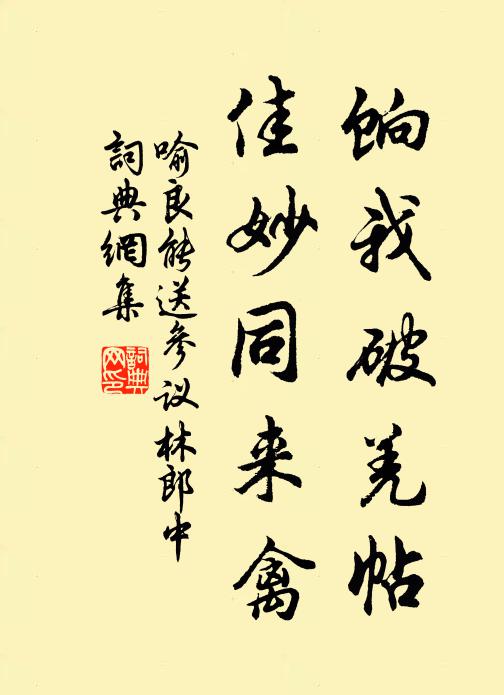 餉我破羌帖
佳妙同来禽
喻良能送參议林郎中
詞典網集
詞典
网印